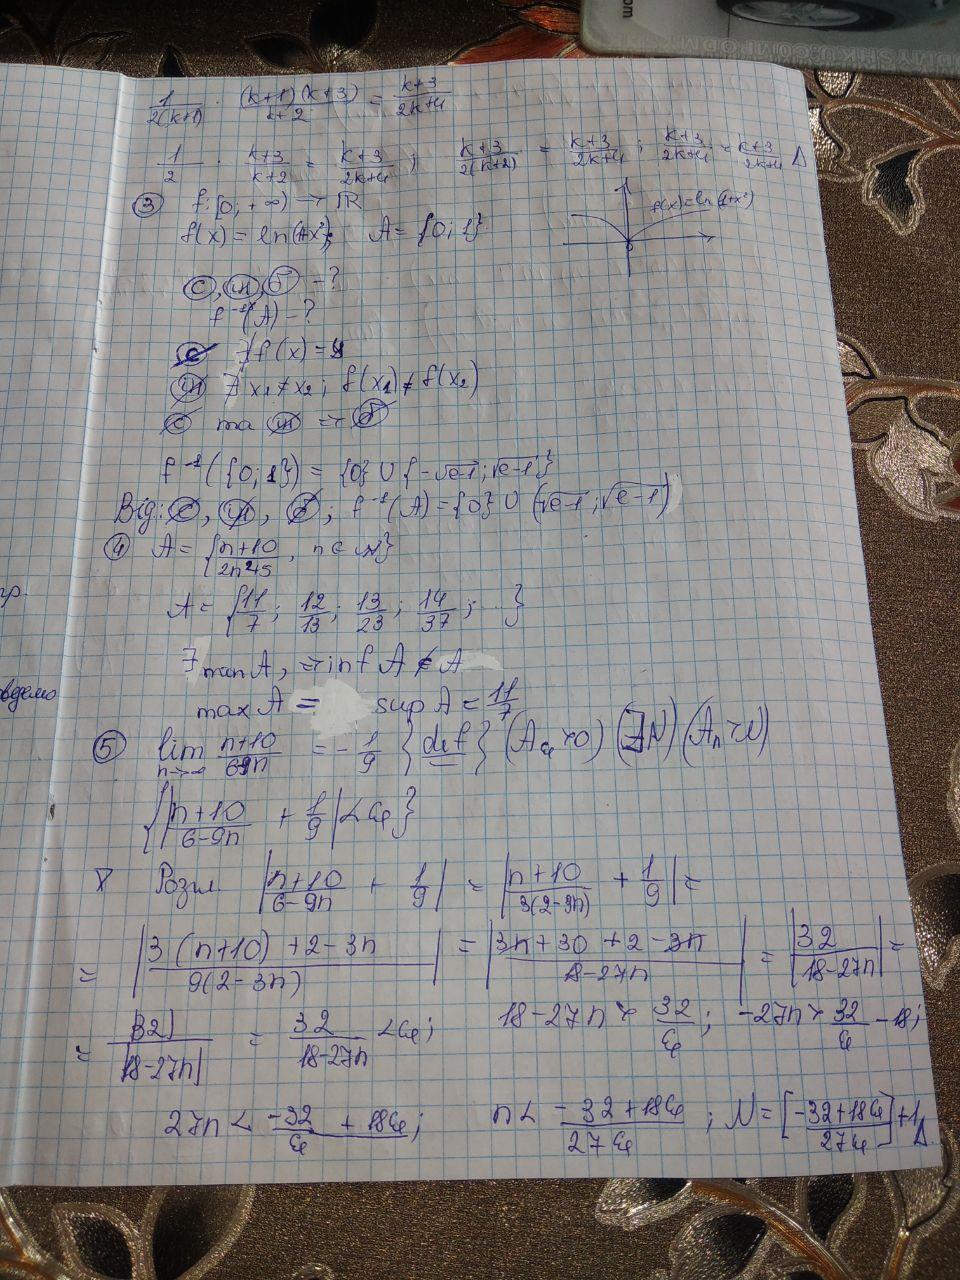 1/(2(k+1)) · (k+1)(k+3)/(k+2) = (k+3)/(2k+4)
1/2 · (k+3)/(k+2) = (k+3)/(2k+4); (k+3)/(2(k+2)) = (k+3)/(2k+4); (k+3)/(2k+4) = (k+3)/(2k+4) Δ
③ f: [0; +∞) → ℝ
f(x) = ln(1+x²); A = {0; 1}
f(x) = ln(1+x²)
с, ін, б - ?
f⁻¹(A) - ?
с ∃ f(x) = y
ін ∃ x₁ ≠ x₂; f(x₁) ≠ f(x₂)
с та ін ⇒ б
f⁻¹({0; 1}) = {0} ∪ {-√e-1; √e-1}
Від: с, ін, б; f⁻¹(A) = {0} ∪ (√e-1; √e-1)
④ A = {(n+10)/(2n²+5), n ∈ ℕ}
A = {11/7; 12/13; 13/23; 14/37; ...}
∃ min A, ⇒ inf A ∉ A
max A = sup A = 11/7
⑤ lim n→∞ (n+10)/(6-9n) = -1/9 {def} (∀ε>0) (∃N) (∀n>N)
{|(n+10)/(6-9n) + 1/9| < ε}
∇ Розгл. |(n+10)/(6-9n) + 1/9| = |(n+10)/(3(2-3n)) + 1/9| =
= |(3(n+10)+2-3n)/(9(2-3n))| = |(3n+30+2-3n)/(18-27n)| = |32/(18-27n)| =
= |32|/|18-27n| = 32/(18-27n) < ε; 18-27n > 32/ε; -27n > 32/ε - 18;
27n < (-32+18ε)/ε; n < (-32+18ε)/(27ε); N = [(-32+18ε)/(27ε)]+1 Δ